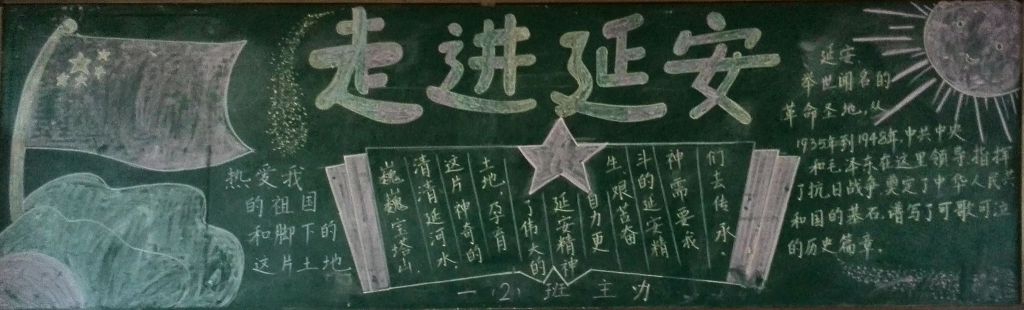 走进延安
热爱我
的祖国
和脚下的
这片土地
巍巍宝塔山,
清清延河水,
这片神奇的
土地,孕育
了伟大的
延安精神
自力更
生、艰苦奋
斗的延安精
神需要我
们去传承。
延安,
举世闻名的
革命圣地,从
1935年到1948年,中共中央
和毛泽东在这里领导、指挥
了抗日战争,奠定了中华人民共
和国的基石,谱写了可歌可泣
的历史篇章。
一(2)班主办